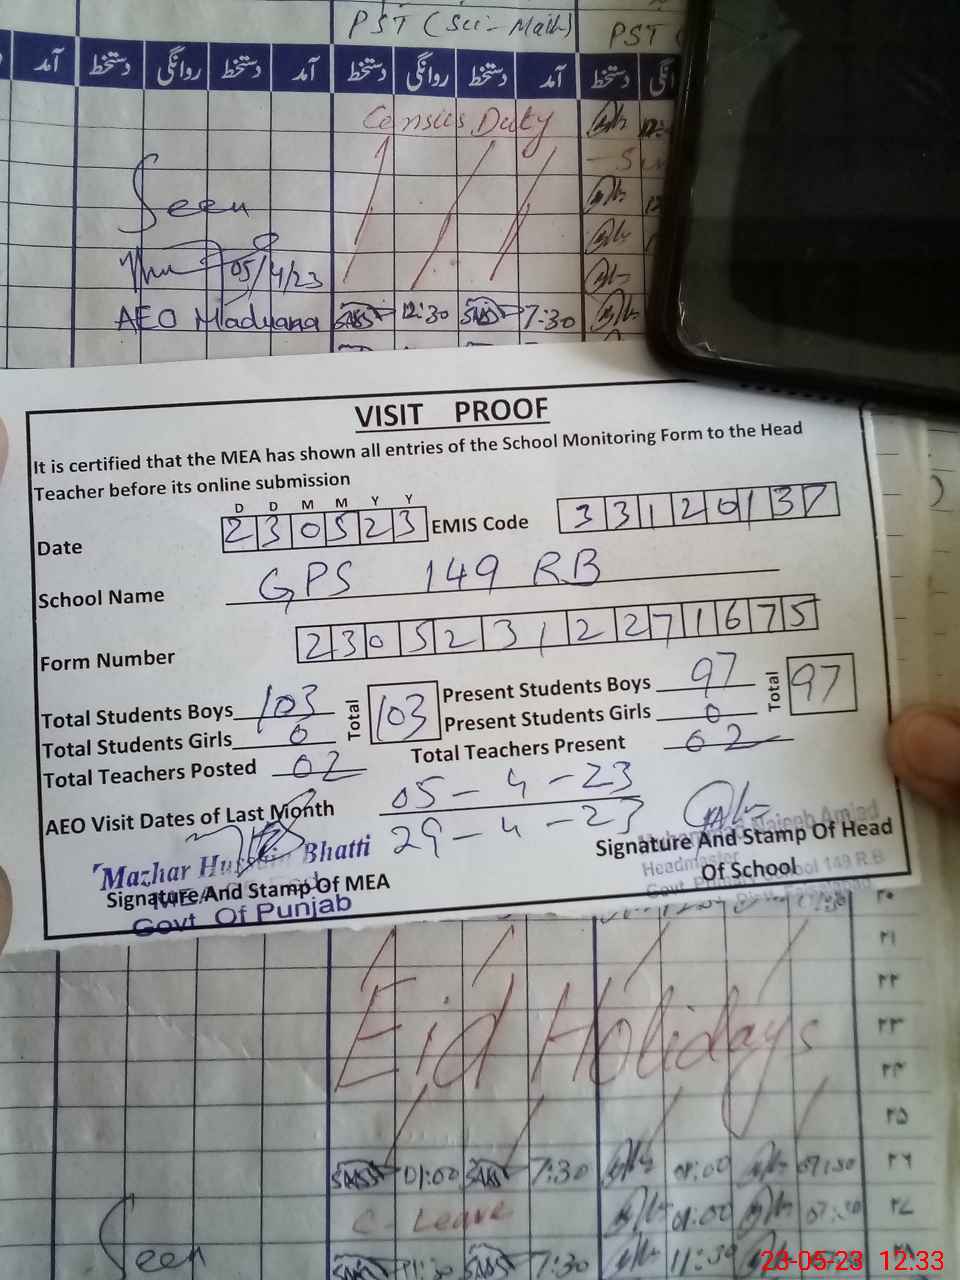 PST (Sci-Math) PST (
آمد دستخط روانگی دستخط آمد دستخط روانگی دستخط آمد دستخط
Census Duty
Seen
05/4/23
AEO Madyana 12:30 7:30
VISIT PROOF
It is certified that the MEA has shown all entries of the School Monitoring Form to the Head
Teacher before its online submission
D D M M Y Y
Date 230523 EMIS Code 33120137
School Name GPS 149 RB
Form Number 23052312271675
Total Students Boys 103 Total 103 Present Students Boys 97 Total 97
Total Students Girls 0 Present Students Girls 0
Total Teachers Posted 02 Total Teachers Present 02
AEO Visit Dates of Last Month 05-4-23
29-4-23
Mazhar Hussain Bhatti
Signature And Stamp Of MEA
Govt Of Punjab
Signature And Stamp Of Head
Headmaster
Of School
۲۰
۲۱
۲۲
Eid Holidays ۲۳
۲۴
۲۵
01:00 7:30 01:00 07:30 ۲۶
C-Leave 01:00 07:30 ۲۷
Seen
11:30 7:30 11:30 ۲۸
23-05-23 12:33